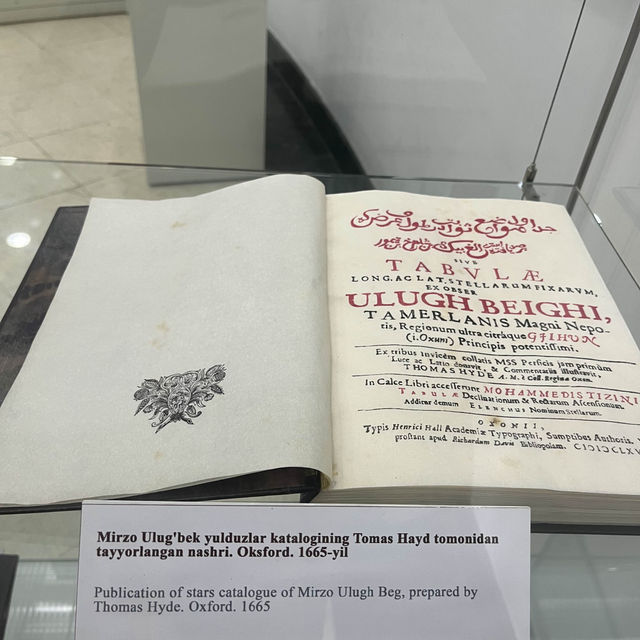 SIVE
TABVLÆ
LONG. AC LAT. STELLARUM FIXARVM,
EX OBSER
ULUGH BEIGHI,
TAMERLANIS Magni Nepo-
tis, Regionum ultra citráque GJIHUN
(i. Oxum) Principis potentissimi.
Ex tribus invicem collatis MSS Persicis jam primùm
Luce ac Latio donavit, & Commentariis illustravit,
THOMAS HYDE A. M. è Coll. Reginæ Oxon.
In Calce Libri accesserunt MOHAMMEDIS TIZINI
TABULÆ Declinationum & Rectarum Ascensionum.
Additur demum ELENCHUS Nominum Stellarum.
OXONII,
Typis Henrici Hall Academiæ Typographi, Sumptibus Authoris.
prostant apud Richardum Davis Bibliopolam.
Mirzo Ulug'bek yulduzlar katalogining Tomas Hayd tomonidan
tayyorlangan nashri. Oksford. 1665-yil
Publication of stars catalogue of Mirzo Ulugh Beg, prepared by
Thomas Hyde. Oxford. 1665